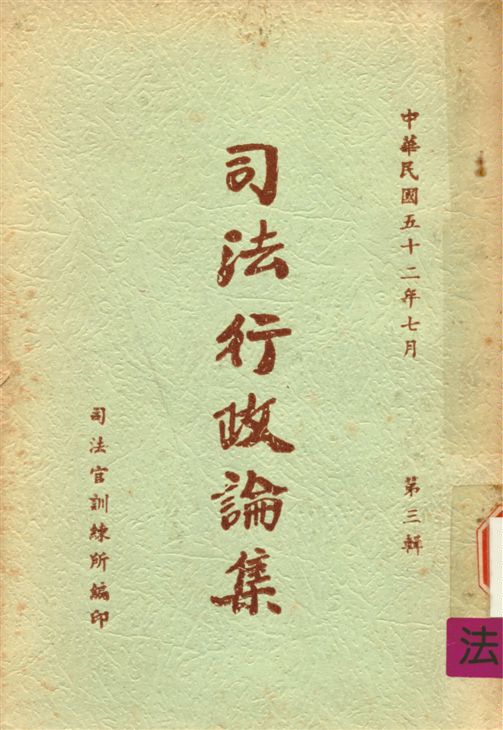 中華民國五十二年七月
第三輯
司法行政論集
司法官訓練所編印
法